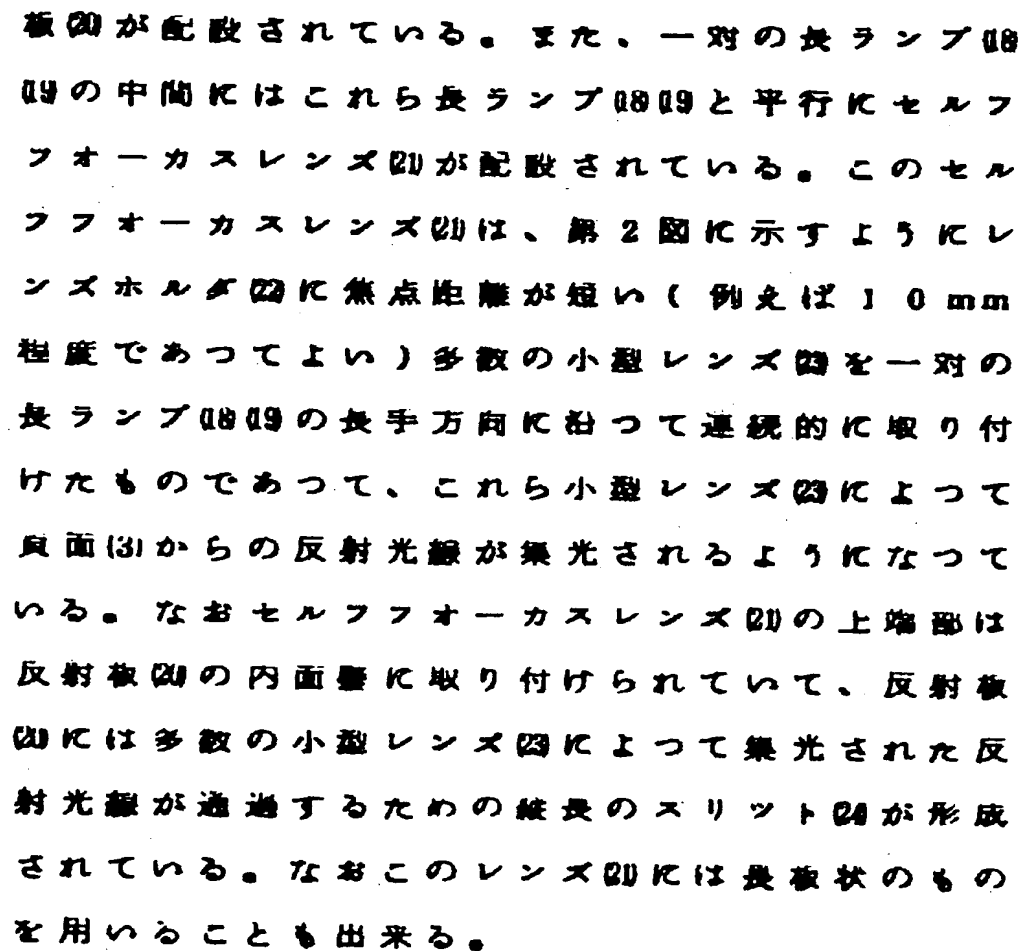 板(20)が配設されている。また、一対の長ランプ(18)
(19)の中間にはこれら長ランプ(18)(19)と平行にセルフ
フオーカスレンズ(21)が配設されている。このセル
フフオーカスレンズ(21)は、第2図に示すようにレ
ンズホルダ(22)に焦点距離が短い(例えば10mm
程度であつてよい)多数の小型レンズ(23)を一対の
長ランプ(18)(19)の長手方向に沿つて連続的に取り付
けたものであつて、これら小型レンズ(23)によつて
頁面(3)からの反射光線が集光されるようになつて
いる。なおセルフフオーカスレンズ(21)の上端部は
反射板(20)の内面壁に取り付けられていて、反射板
(20)には多数の小型レンズ(23)によつて集光された反
射光線が通過するための縦長のスリツト(24)が形成
されている。なおこのレンズ(21)には長板状のもの
を用いることも出来る。